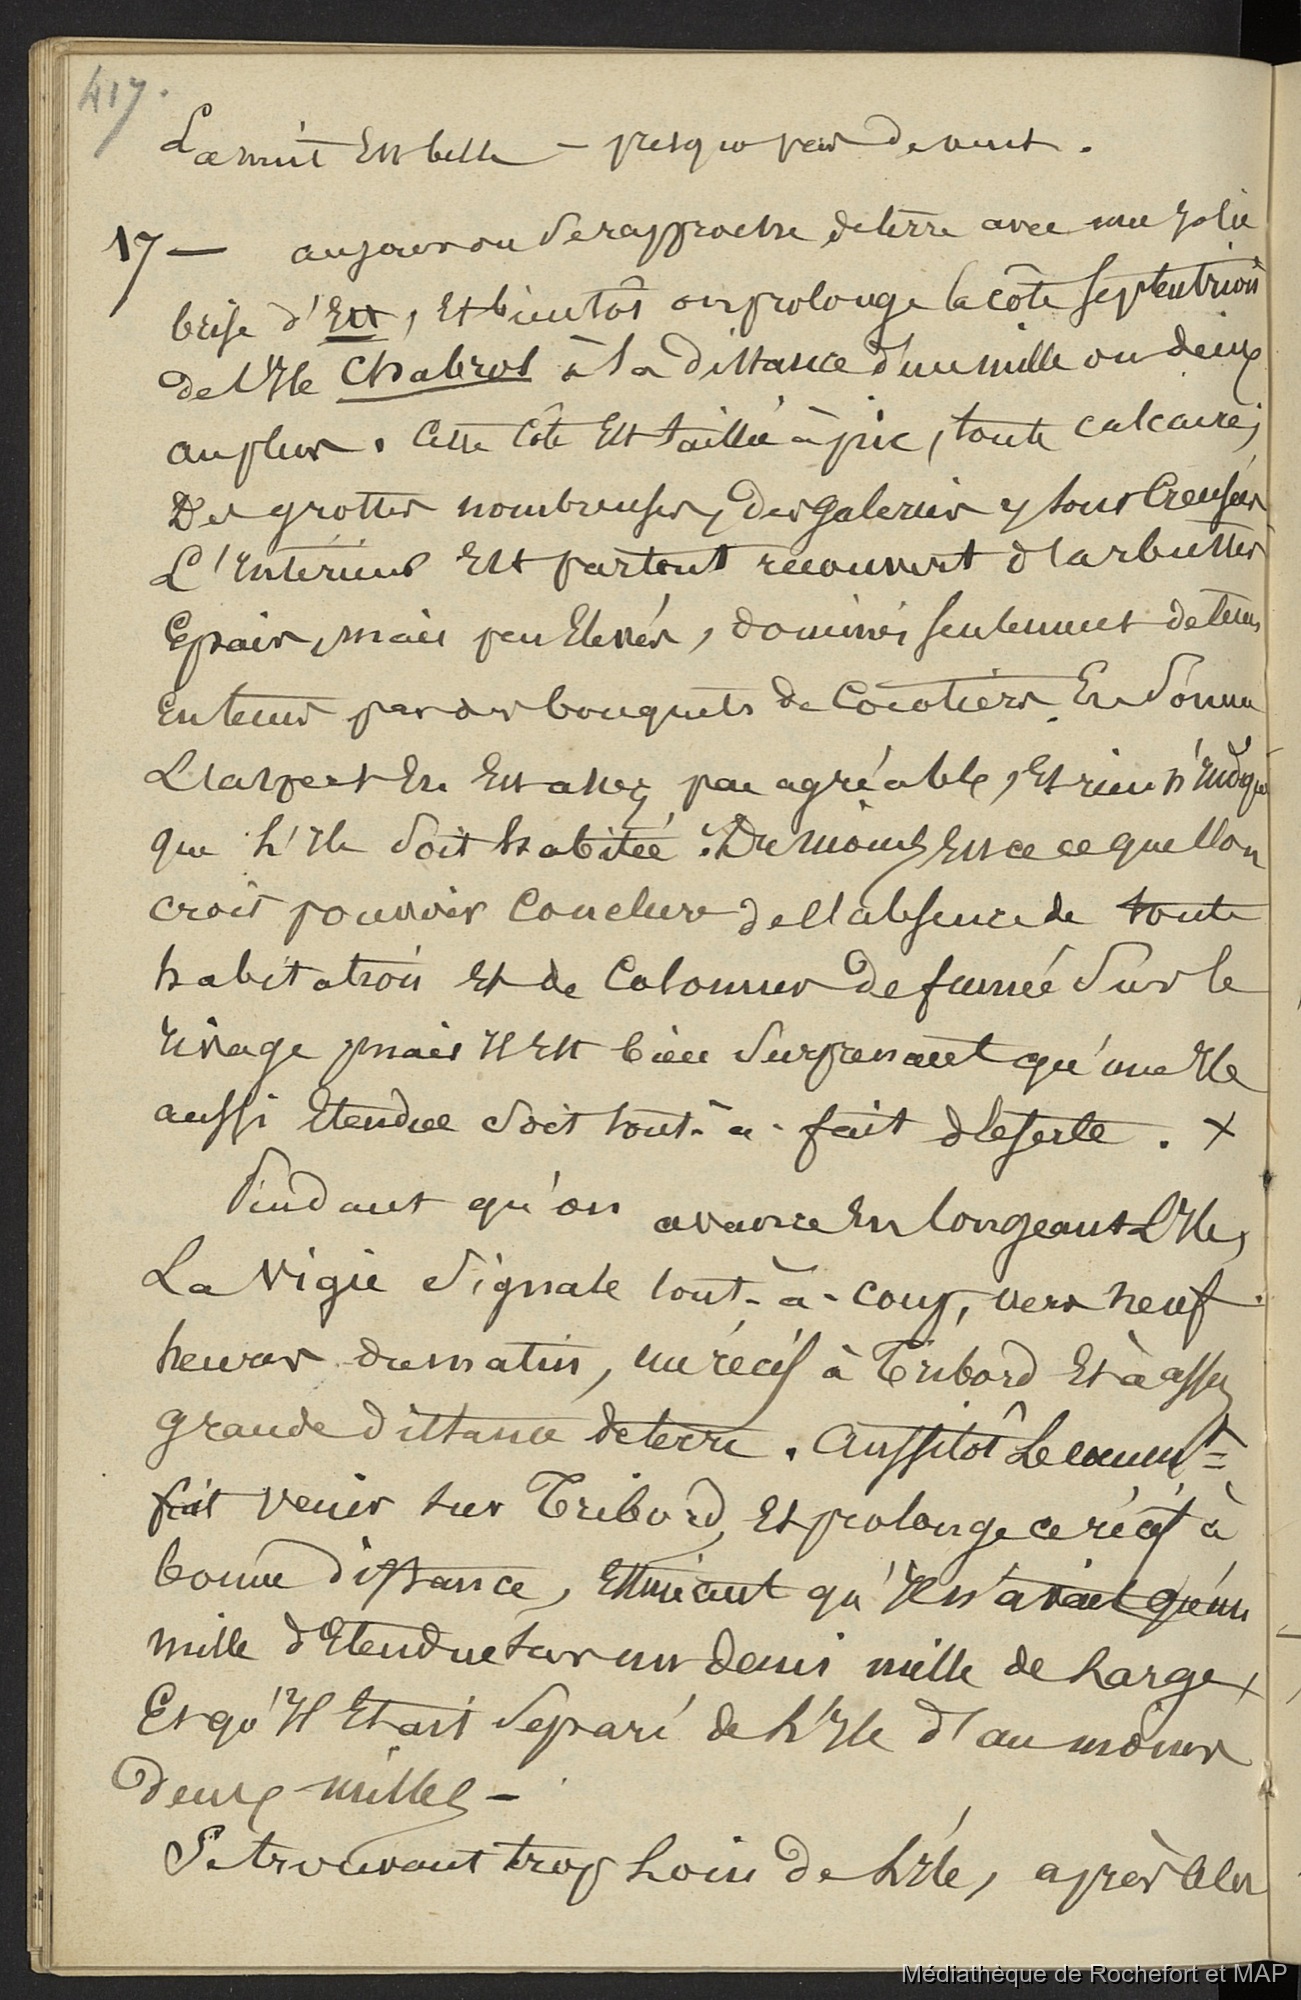 417.
La nuit est belle – presque pas de vent.
17 — au jour on se rapproche de terre avec une jolie
brise d'Est, et bientôt on prolonge la côte septentrion
de l'Ile Chabrol à la distance d'un mille ou deux
au plus. Cette côte est taillée à pic, toute calcaire;
Des grottes nombreuses, des galeries y sont creusées
L'intérieur est partout recouvert d'arbustes
Epais, mais peu élevés, dominés seulement de tems
en tems par des bouquets de Cocotiers. En somme
L'aspect en est assez peu agréable, et rien n'indique
que l'Ile soit habitée. Du moins est ce ce que l'on
croit pouvoir conclure de l'absence de toute
habitation et de Colonnes de fumée sur le
rivage mais il est bien surprenant qu'une Ile
aussi étendue soit tout-à-fait déserte. X
Pendant qu'on avance en longeant l'Ile,
La vigie signale tout-à-coup, vers neuf
heures du matin, un récif à Tribord et à assez
grande distance de terre. Aussitôt le comm.t
fait venir sur Tribord, et prolonge ce récif à
bonne distance, estimant qu'il n'avait qu'un
mille d'étendue sur un demi mille de large,
Et qu'il était séparé de l'Ile d'au moins
deux milles –
Se trouvant trop loin de l'Ile, après
Médiathèque de Rochefort et MAP